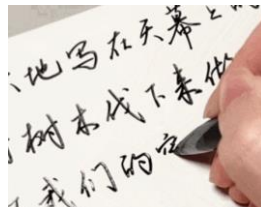 地写在天幕上
树木伐下来做
我们的